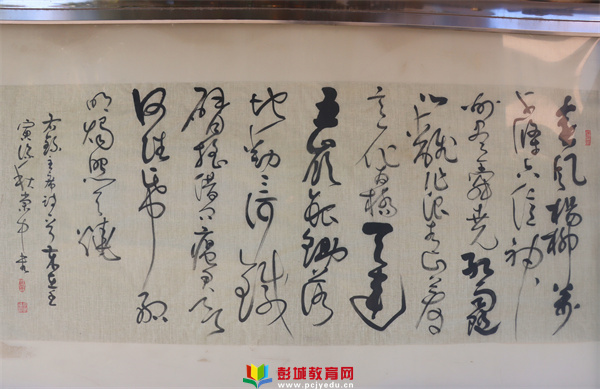 春风杨柳万
千條六亿神
州尽舜尧红雨随
心翻作浪青山着
意化为橋天连
五岭银锄落
地动三河鐵
臂摇借问瘟君欲
何往纸船
明燭照天烧
右錄主席诗
秋
书
彭城教育网
www.pcjyedu.cn